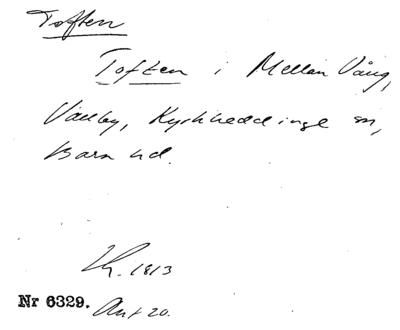 Toften
Toften i Mellan Vång,
Vallby, Kyrkheddinge sn,
Bara hd.
1813
Nr 6329.
20.